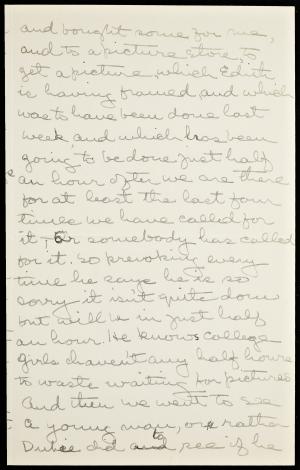 and bought some for me,
and to a picture store, to
get a picture, which Edith
is having framed, and which
was to have been done last
week, and which has been
going to be done just half
an hour after we are there
for at least the last four
times we have called for
it, or somebody has called
for it. So provoking every
time he says he is so
sorry it isn't quite done
but will be in just half
an hour. He knows college
girls haven't any half hours
to waste waiting for pictures
And then we went to see
a young man, or rather
did to see if he